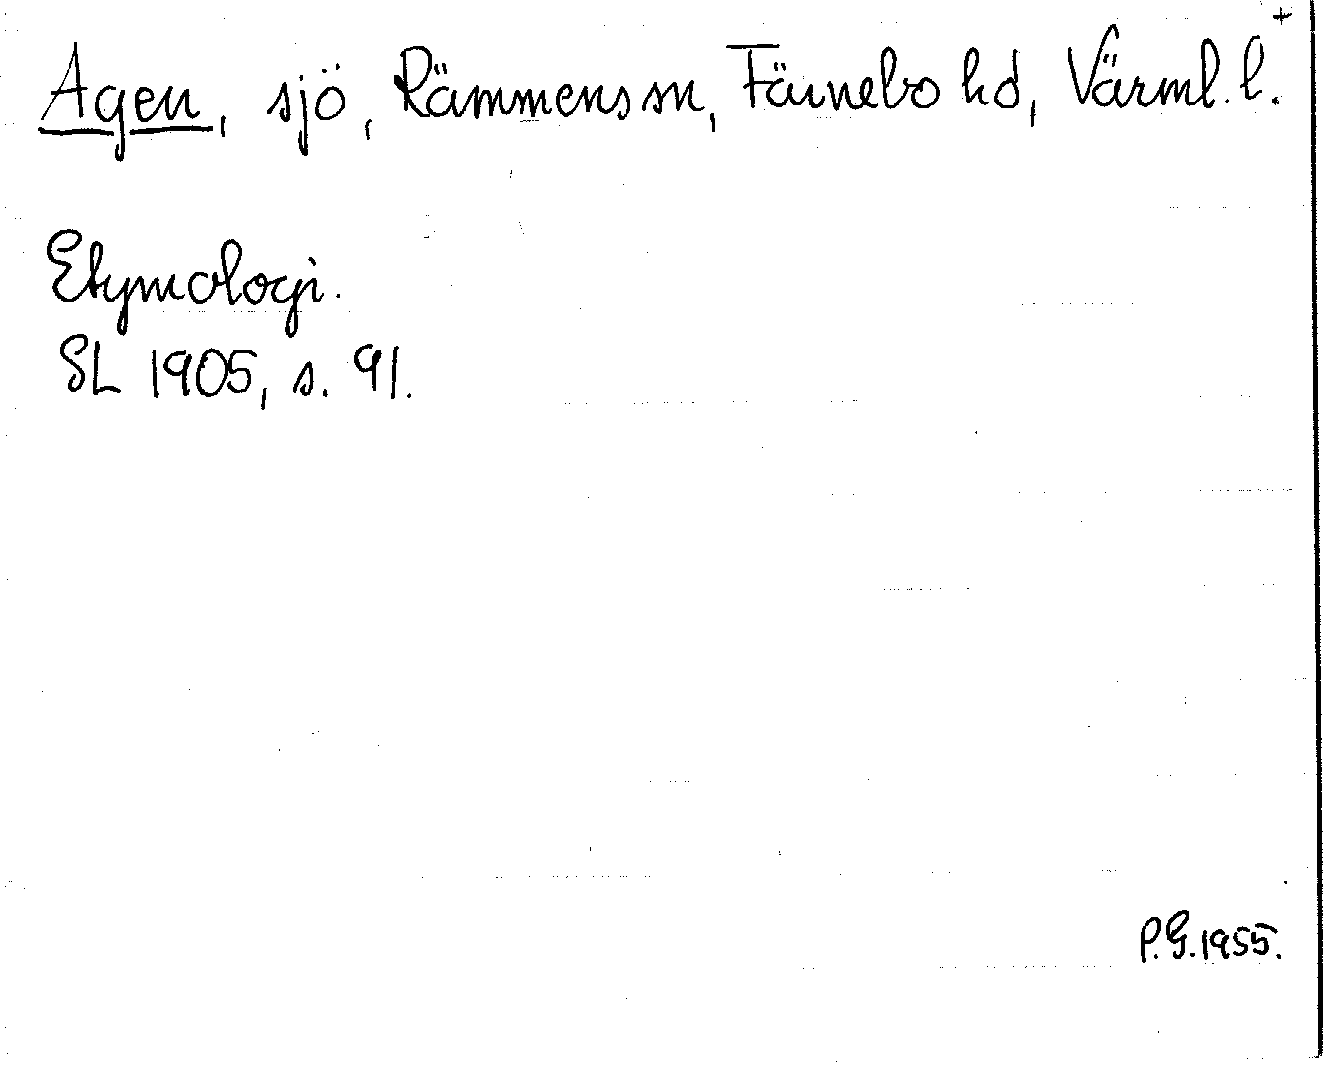 Agen, sjö, Rämmens sn, Färnebo hd, Värml. l. +
Etymologi.
SL 1905, s. 91.
P.G. 1955.